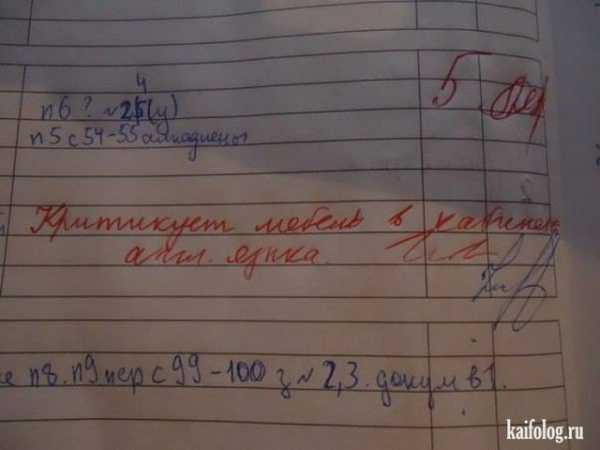 п6 ? №24(у) 5
п5 с 54-55
Критикует мебель в кабинете
англ. языка.
п8. п9 пер с 99-100 з №2,3. докум в 1.
kaifolog.ru